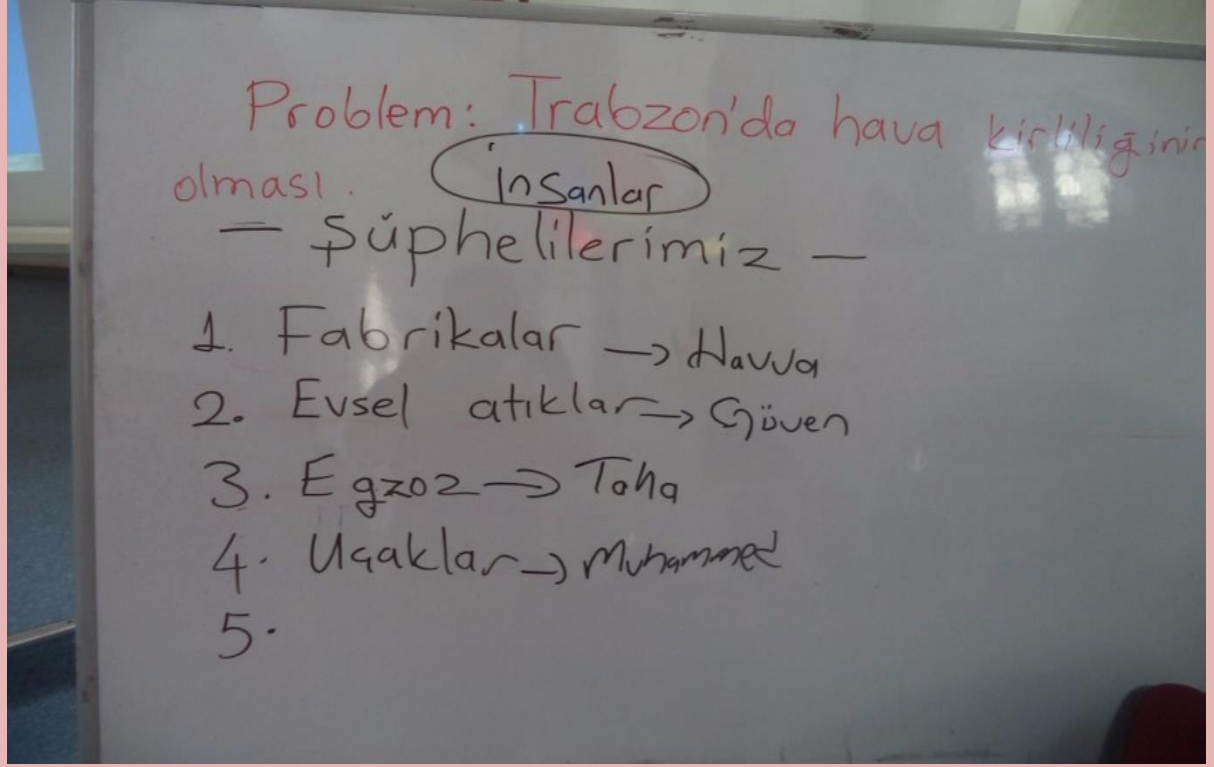 Problem: Trabzon'da hava kirliliğinin
olması.
İnsanlar
— Şüphelilerimiz —
1. Fabrikalar → Havva
2. Evsel atıklar → Güven
3. Egzoz → Taha
4. Uçaklar → Muhammed
5.